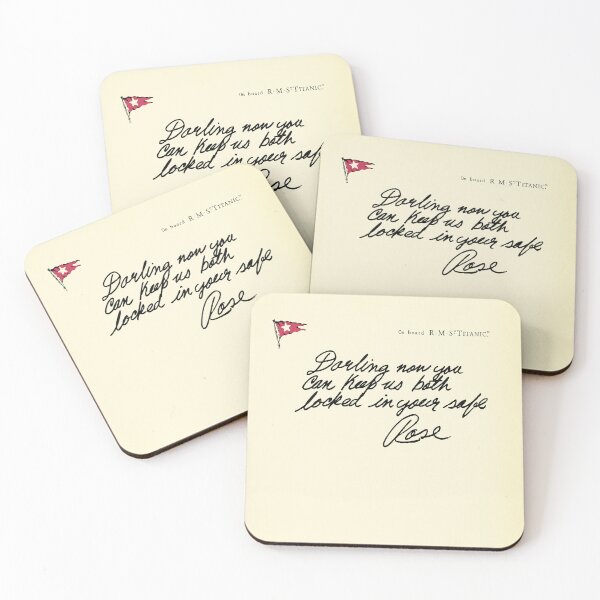 On board R·M·S "TITANIC."
Darling now you
can keep us both
locked in your safe
Rose
On board R·M·S "TITANIC."
Darling now you
can keep us both
locked in your safe
Rose
On board R·M·S "TITANIC."
Darling now you
can keep us both
locked in your safe
Rose
On board R·M·S "TITANIC."
Darling now you
can keep us both
locked in your safe
Rose